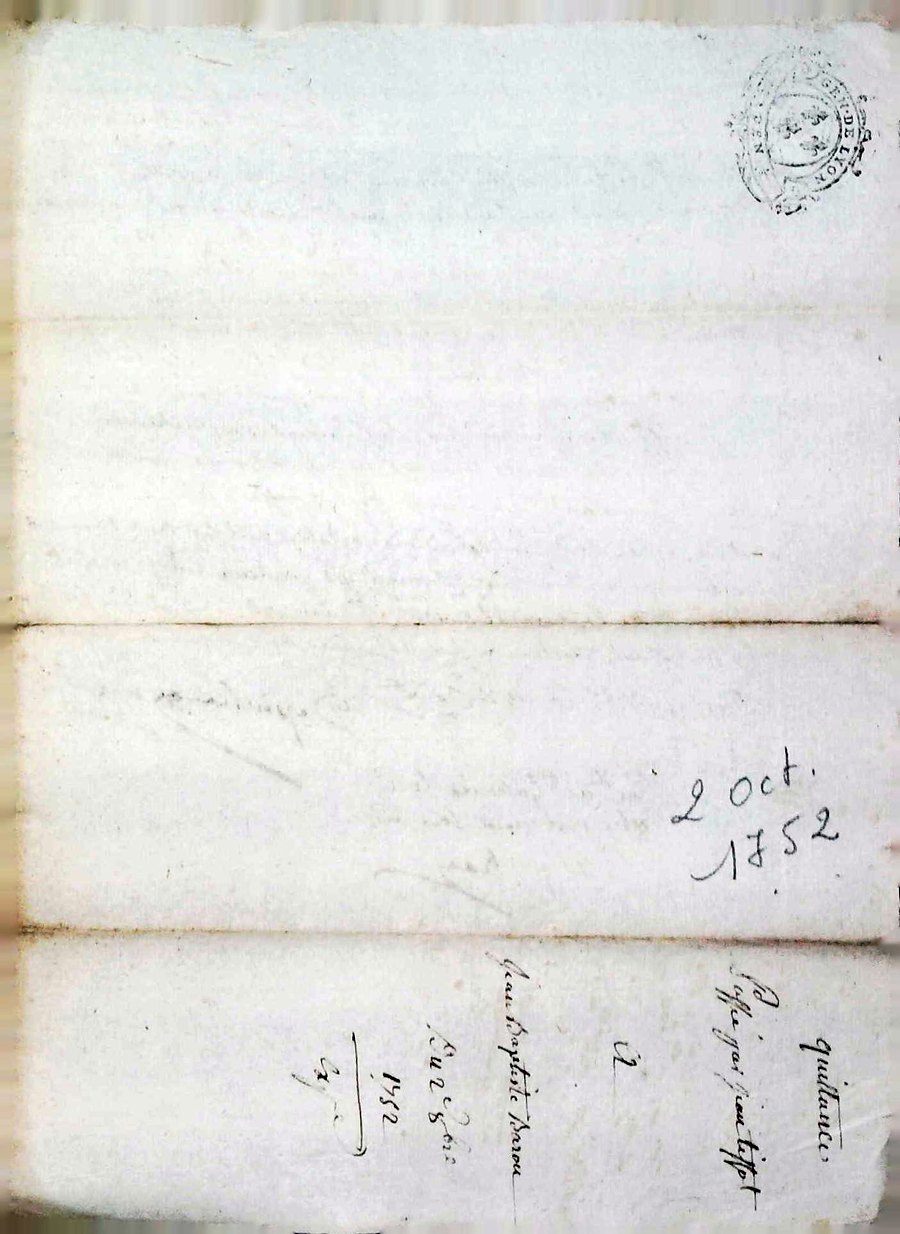 GEN. DE LYON
2 Oct.
1752
quittance
Passé par Jean
A
Jean Baptiste Barou
Du 2 8bre
1752